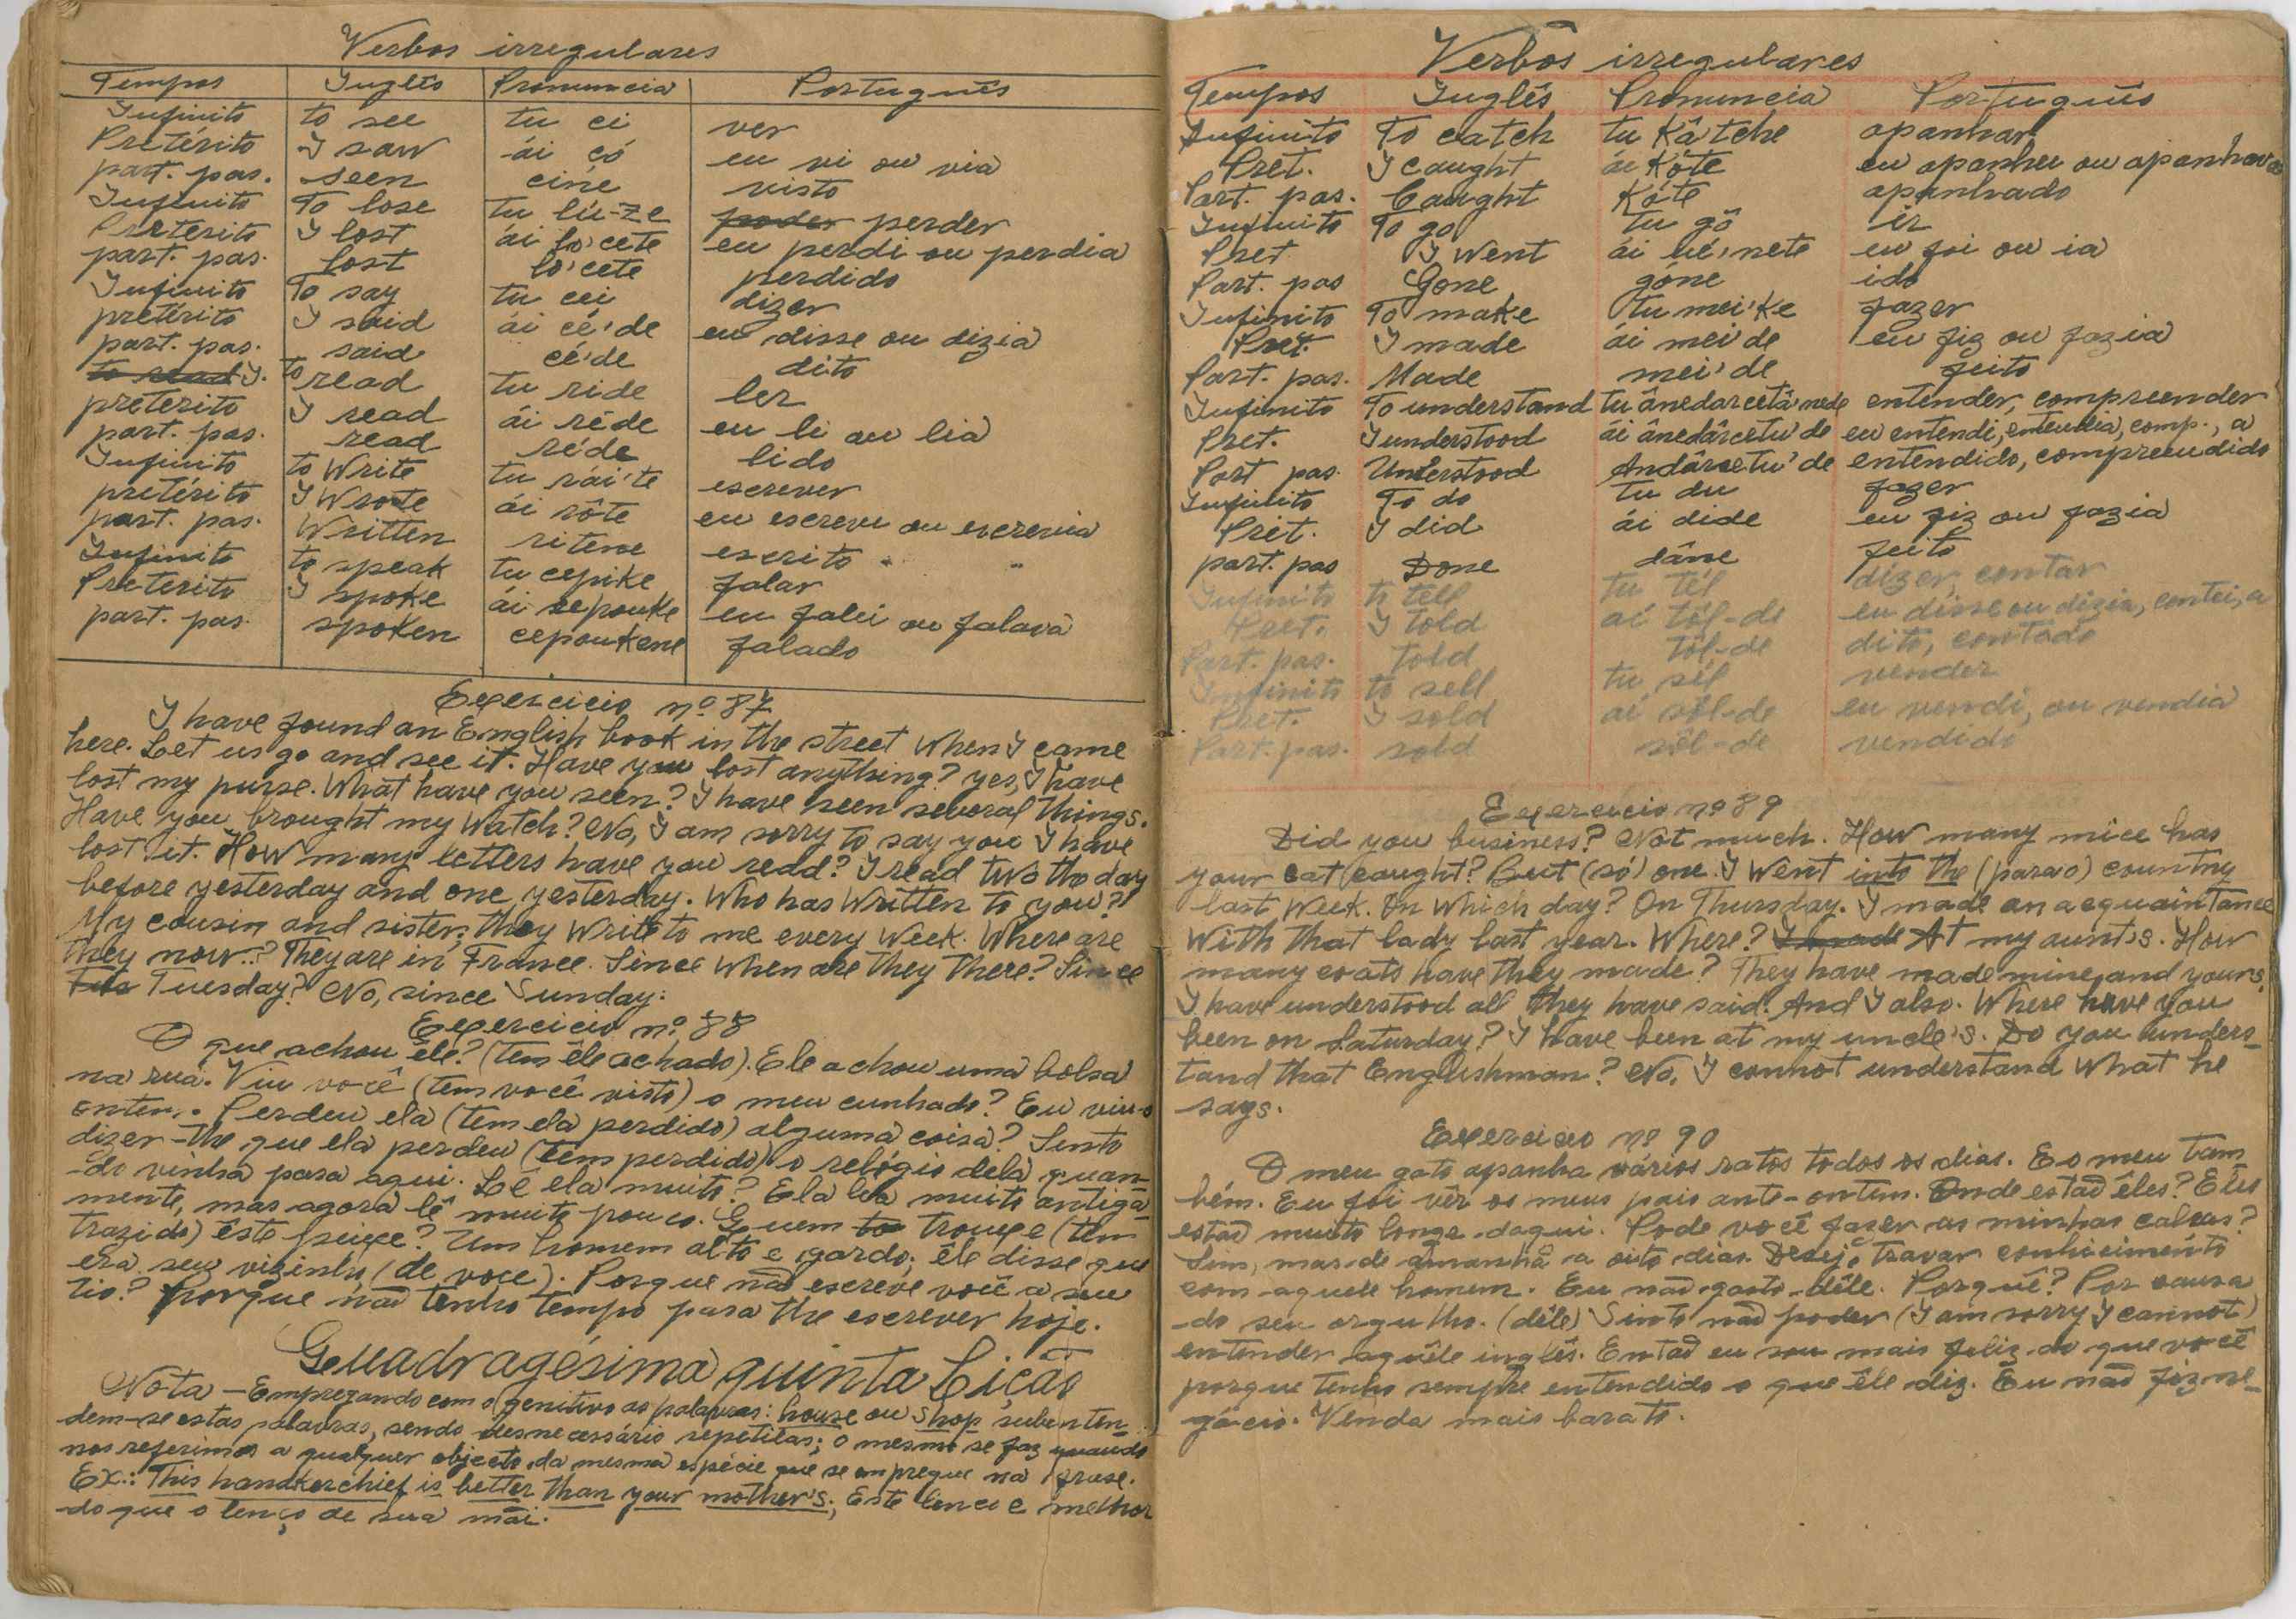 Verbos irregulares
Tempos Inglês Pronuncia Português
Infinito to see tu ci ver
Pretérito I saw ái çó eu vi ou via
part. pas. seen cine visto
Infinito To lose tu lú-ze perder
Pretérito I lost ái ló'cete eu perdi ou perdia
part. pas. lost ló'cete perdido
Infinito To say tu cei dizer
pretérito I said ái cé'de eu disse ou dizia
part. pas. said cé'de dito
to read I. to read tu ride ler
pretérito I read ái réde eu li ou lia
part. pas. read réde lido
Infinito to Write tu rái'te escrever
pretérito I Wrote ái rôte eu escrevi ou escrevia
part. pas. Written ritene escrito " "
Infinito to speak tu cepike falar
Preterito I spoke ái cepouke eu falei ou falava
part. pas. spoken cepoukene falado
Exercicio nº 87
I have found an English book in the street When I came
here. Let us go and see it. Have you lost anything? yes, I have
lost my purse. What have you seen? I have seen several things.
Have you brought my Watch? No, I am sorry to say you I have
lost it. How many letters have you read? I read two the day
before yesterday and one yesterday. Who has Written to you?
My cousin and sister; they Write to me every Week. Where are
they now..? They are in France. Since When are they there? Since
Tuesday? No, since Sunday.
Exercicio nº 88
O que achou êle? (tem êle achado). Ele achou uma bolsa
na rua. Viu você (tem você visto) o meu cunhado? Eu viu-o
ontem. Perdeu ela (tem ela perdido) alguma coisa? Sinto
dizer-lhe que ela perdeu (tem perdido) o relógio dela quan-
do vinha para aqui. Lê ela muito? Ela lia muito antiga-
mente, mas agora lê muito pouco. Quem to trouxe (tem
trazido) êste peixe? Um homem alto e gordo; êle disse que
era seu vizinho (de voce). Porque não escreve você a seu
tio? porque não tenho tempo para lhe escrever hoje.
Quadragésima quinta Lição
Nota - Empregando com o genitivo as palavras: house ou shop, subenten-
dem-se estas palavras, sendo desnecessário repeti-las; o mesmo se faz quando
nos referimos a qualquer objecto da mesma espécie que se empregue na frase.
Ex.: This handkerchief is better than your mother's; Este lenço é melhor
do que o lenço de sua mãi.
Verbos irregulares
Tempos Inglês Pronuncia Português
Infinito To catch tu Kâtche apanhar
Pret. I caught ái Kóte eu apanhei ou apanhava
Part. pas. Caught Kóte apanhado
Infinito To go tu gô ir
Pret I Went ái ué'nete eu foi ou ia
Part. pas Gone góne ido
Infinito To make tu mei'ke fazer
Pret. I made ái mei'de eu fiz ou fazia
Part. pas. Made mei'de feito
Infinito To understand tu ânedarcetâ'nede entender, compreender
Pret. I understood ái ânedârcetu'de eu entendi, entendia, comp., a
Part pas. Understood Andârcetu'de entendido, compreendido
Infinito To do tu du fazer
Pret. I did ái dide eu fiz ou fazia
part. pas Done dâne feito
Infinito to tell tu tél dizer, contar
Pret. I told ai tôl-de eu disse ou dizia, contei, a
Part. pas. told tôl-de dito, contado
Infinito to sell tu sél vender
Pret. I sold ai sôl-de eu vendi, ou vendia
Part. pas. sold sôl-de vendido
Exercicio nº 89
Did you business? Not much. How many mice has
your cat caught? But (só) one. I Went into the (para o) country
last Week. On Which day? On Thursday. I made an acquaintance
With that lady last year. Where? I made At my aunt's. How
many coats have they made? They have made mine, and yours.
I have understood all they have said. And I also. Where have you
been on Saturday? I have been at my uncle's. Do you unders-
tand that Englishman? No, I connot understand What he
says.
Exercicio nº 90
O meu gato apanha vários ratos todos os dias. E o meu tam
bém. Eu foi vêr os meus pais ante-ontem. Onde estão êles? Eles
estão muito longe daqui. Pode você fazer as minhas calças?
Sim, mas de amanhã a oito dias. Desejo travar conhecimento
com aquele homem. Eu não gosto dêle. Porquê? Por causa
do seu orgulho. (dêle) Sinto não poder (I am sorry I cannot)
entender aquêle inglês. Então eu sou mais feliz do que você
porque tenho sempre entendido o que êle diz. Eu não fiz ne-
gócio. Venda mais barato.